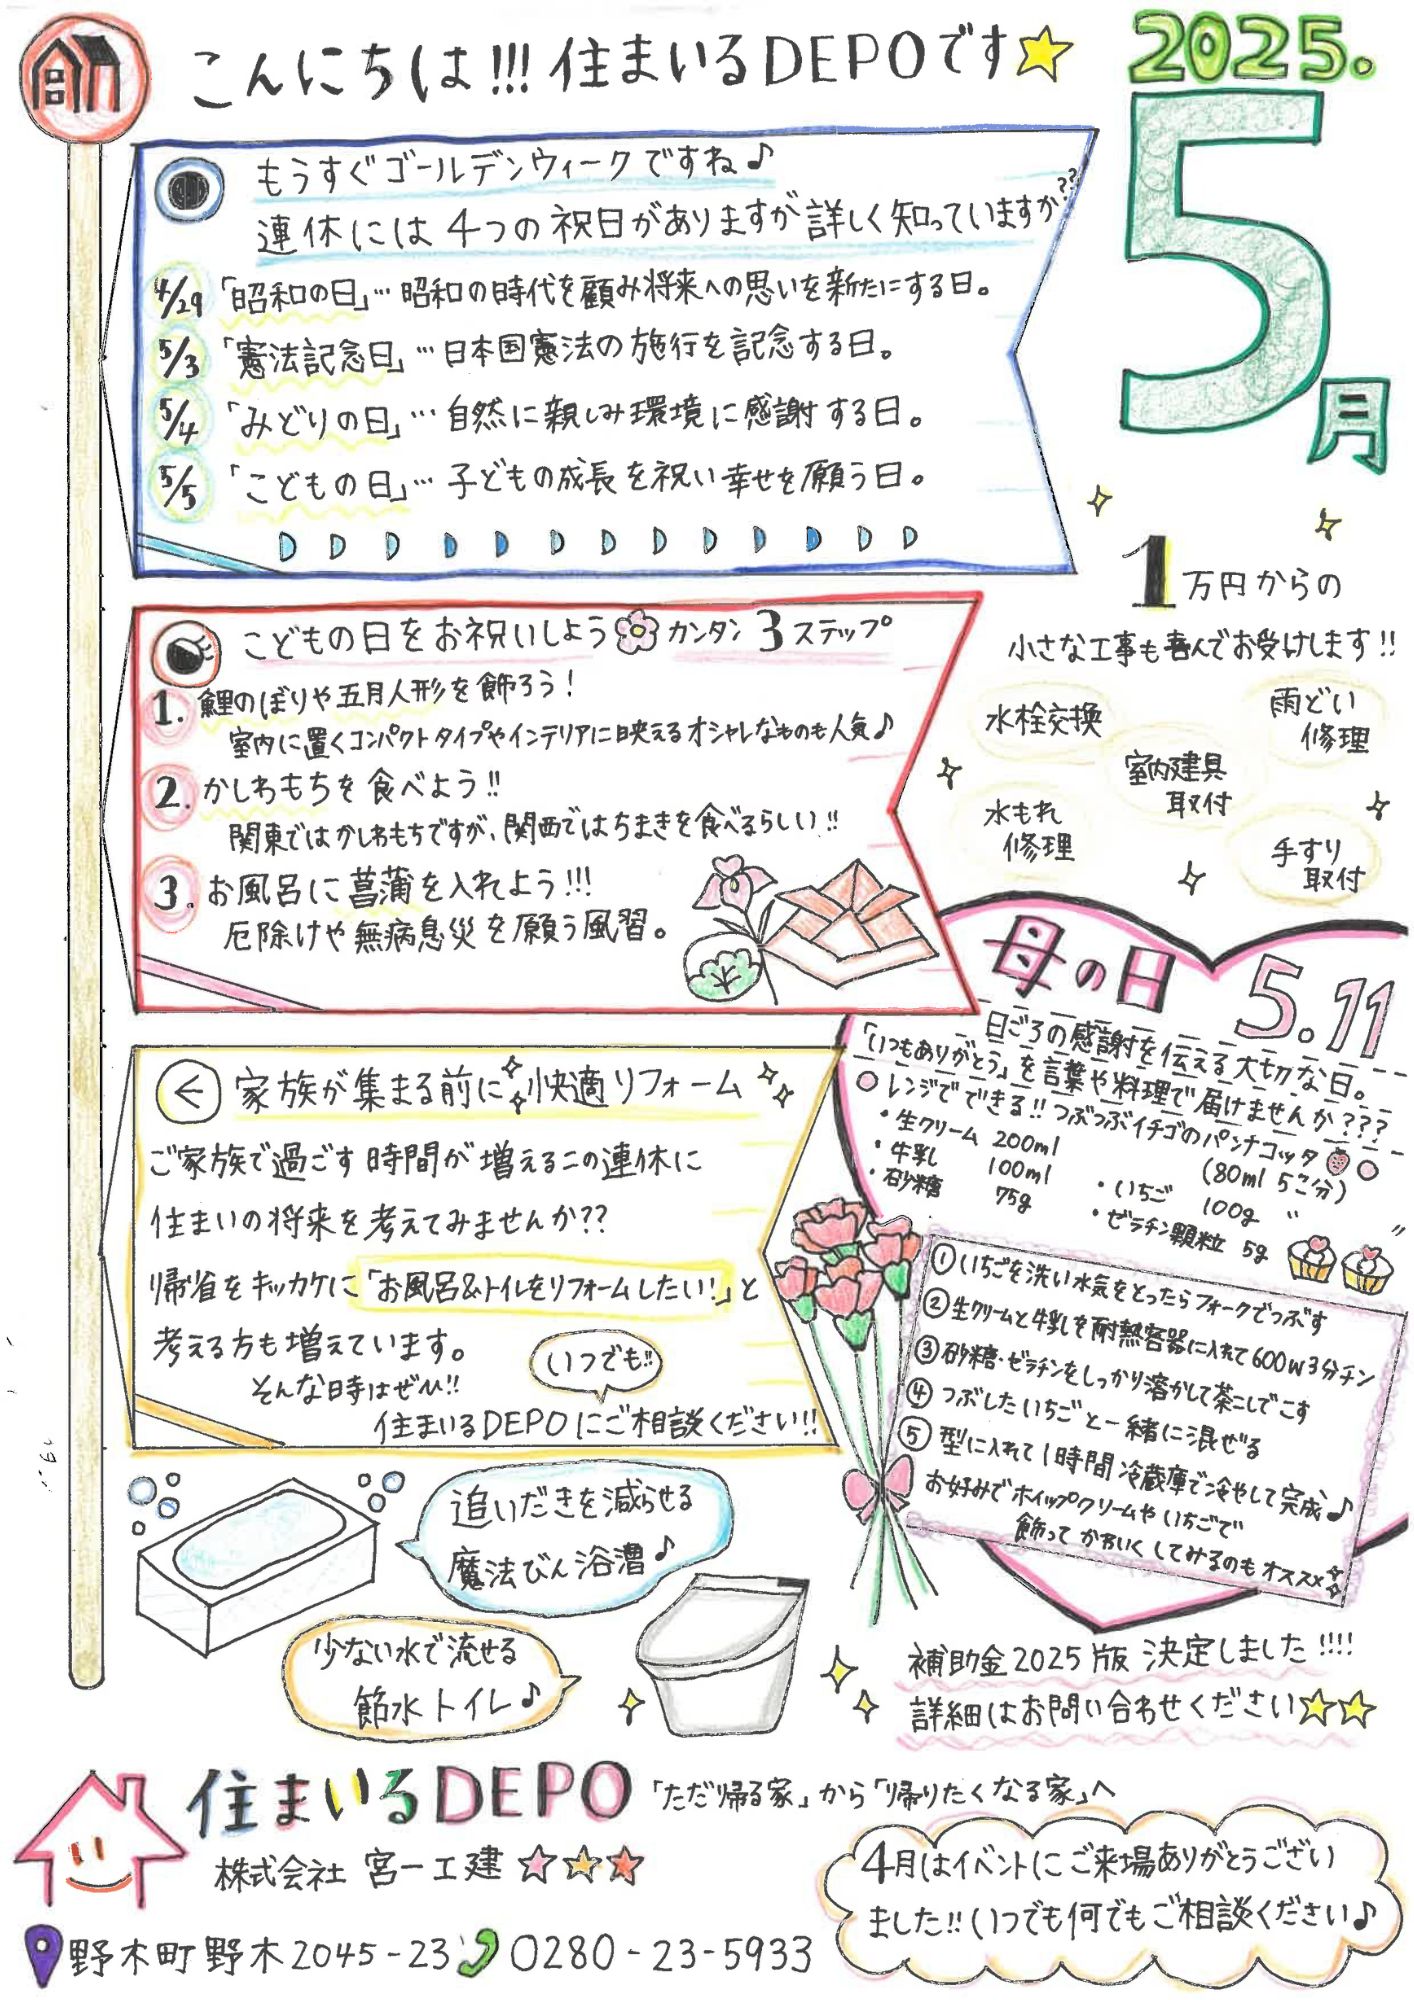 こんにちは!!! 住まいるDEPOです
2025.
5月
もうすぐゴールデンウィークですね♪
連休には4つの祝日がありますが詳しく知っていますか??
4/29 「昭和の日」… 昭和の時代を顧み将来への思いを新たにする日。
5/3 「憲法記念日」… 日本国憲法の施行を記念する日。
5/4 「みどりの日」… 自然に親しみ環境に感謝する日。
5/5 「こどもの日」… 子どもの成長を祝い幸せを願う日。
1万円からの
小さな工事も喜んでお受けします!!
水栓交換
雨どい
修理
室内建具
取付
水もれ
修理
手すり
取付
こどもの日をお祝いしよう カンタン 3ステップ
1. 鯉のぼりや五月人形を飾ろう!
室内に置くコンパクトタイプやインテリアに映えるオシャレなものも人気♪
2. かしわもちを食べよう!!
関東ではかしわもちですが、関西ではちまきを食べるらしい!!
3. お風呂に菖蒲を入れよう!!!
厄除けや無病息災を願う風習。
母の日 5.11
日ごろの感謝を伝える大切な日。
「いつもありがとう」を言葉や料理で届けませんか???
レンジでできる!! つぶつぶイチゴのパンナコッタ
(80ml 5こ分)
・生クリーム 200ml
・牛乳 100ml
・砂糖 75g
・いちご 100g
・ゼラチン顆粒 5g
① いちごを洗い水気をとったらフォークでつぶす
② 生クリームと牛乳を耐熱容器に入れて600W3分チン
③ 砂糖・ゼラチンをしっかり溶かして茶こしでこす
④ つぶしたいちごと一緒に混ぜる
⑤ 型に入れて1時間冷蔵庫で冷やして完成♪
お好みでホイップクリームやいちごで
飾ってかわいくしてみるのもオススメ
家族が集まる前に 快適リフォーム
ご家族で過ごす時間が増えるこの連休に
住まいの将来を考えてみませんか??
帰省をキッカケに「お風呂&トイレをリフォームしたい!」と
考える方も増えています。
そんな時はぜひ!!
いつでも!!
住まいるDEPOにご相談ください!!
追いだきを減らせる
魔法びん浴漕♪
少ない水で流せる
節水トイレ♪
補助金2025版 決定しました!!!!
詳細はお問い合わせください
住まいるDEPO 「ただ帰る家」から「帰りたくなる家」へ
株式会社 宮一工建
野木町野木2045-23 0280-23-5933
4月はイベントにご来場ありがとうござい
ました!! いつでも何でもご相談ください♪